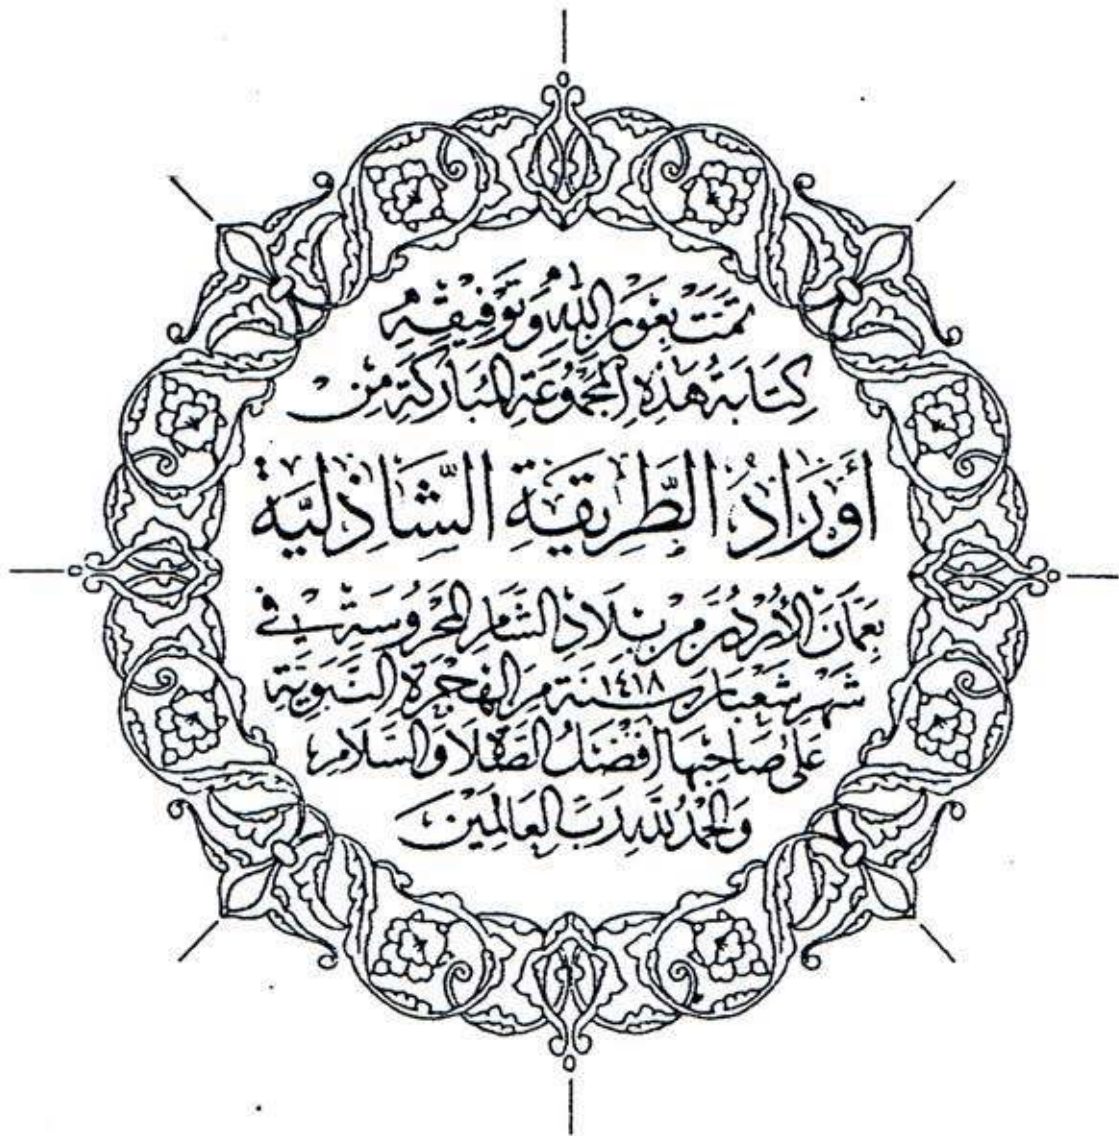 تمَّتْ بِعَوْنِ اللهِ وَتَوْفِيقِهِ
كِتَابَةُ هٰذِهِ المَجْمُوعَةِ المُبَارَكَةِ مِنْ
أَوْرَادُ الطَّرِيقَةِ الشَّاذِلِيَّة
بِعَمَّانَ الأُرْدُن مِنْ بِلَادِ الشَّامِ المَحْرُوسَةِ فِي
شَهْرِ شَعْبَان سَنَة ١٤١٨ مِنَ الهِجْرَةِ النَّبَوِيَّة
عَلَى صَاحِبِهَا أَفْضَلُ الصَّلَاةِ وَالسَّلَامِ
وَالحَمْدُ لِلَّهِ رَبِّ العَالَمِينَ